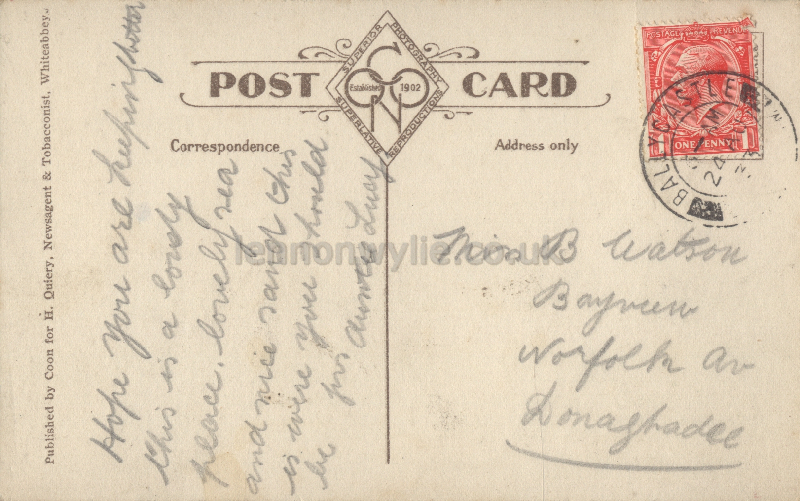 POST CARD
SUPERIOR PHOTOGRAPHY
SUPERLATIVE REPRODUCTIONS
Established 1902
Correspondence
Address only
POSTAGE REVENUE
ONE PENNY
BALLYCASTLE
24
Published by Coon for H. Quiery, Newsagent & Tobacconist, Whiteabbey.
Hope you are keeping better
this is a lovely
place, lovely sea
and nice sand this
is were you should
be
answer Lucy
Miss B Watson
Bayview
Norfolk Av
Donaghadee
lennonwylie.co.uk